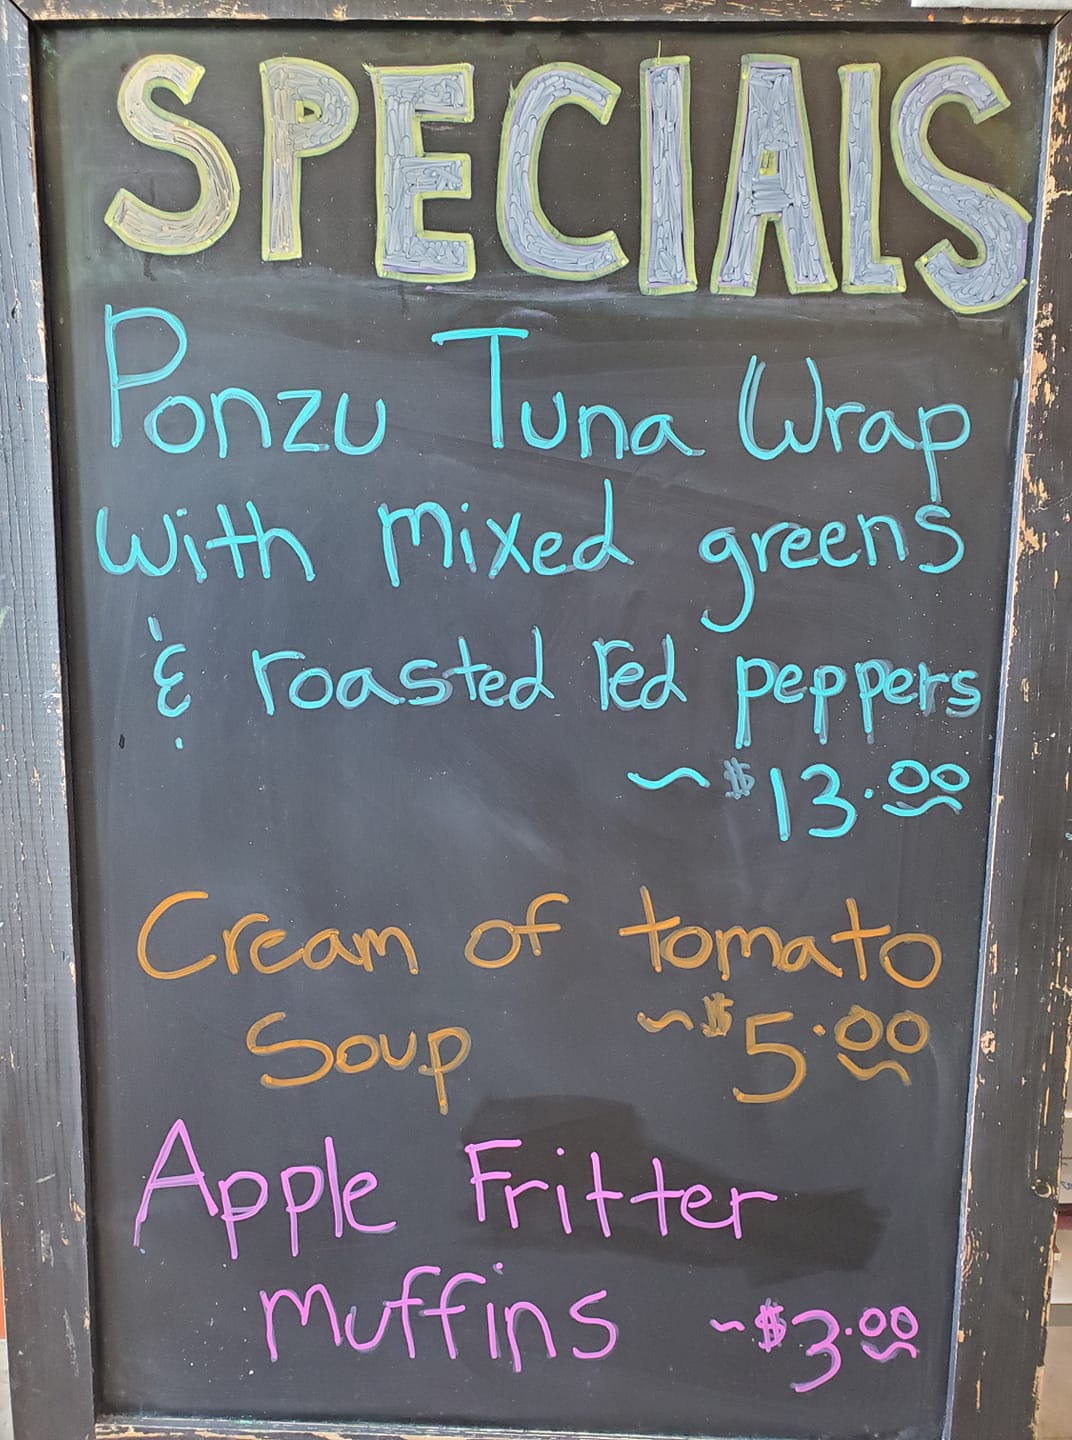 SPECIALS
Ponzu Tuna Wrap
with mixed greens
& roasted red peppers
~ $13.00
Cream of tomato
Soup ~$5.00
Apple Fritter
muffins ~$3.00